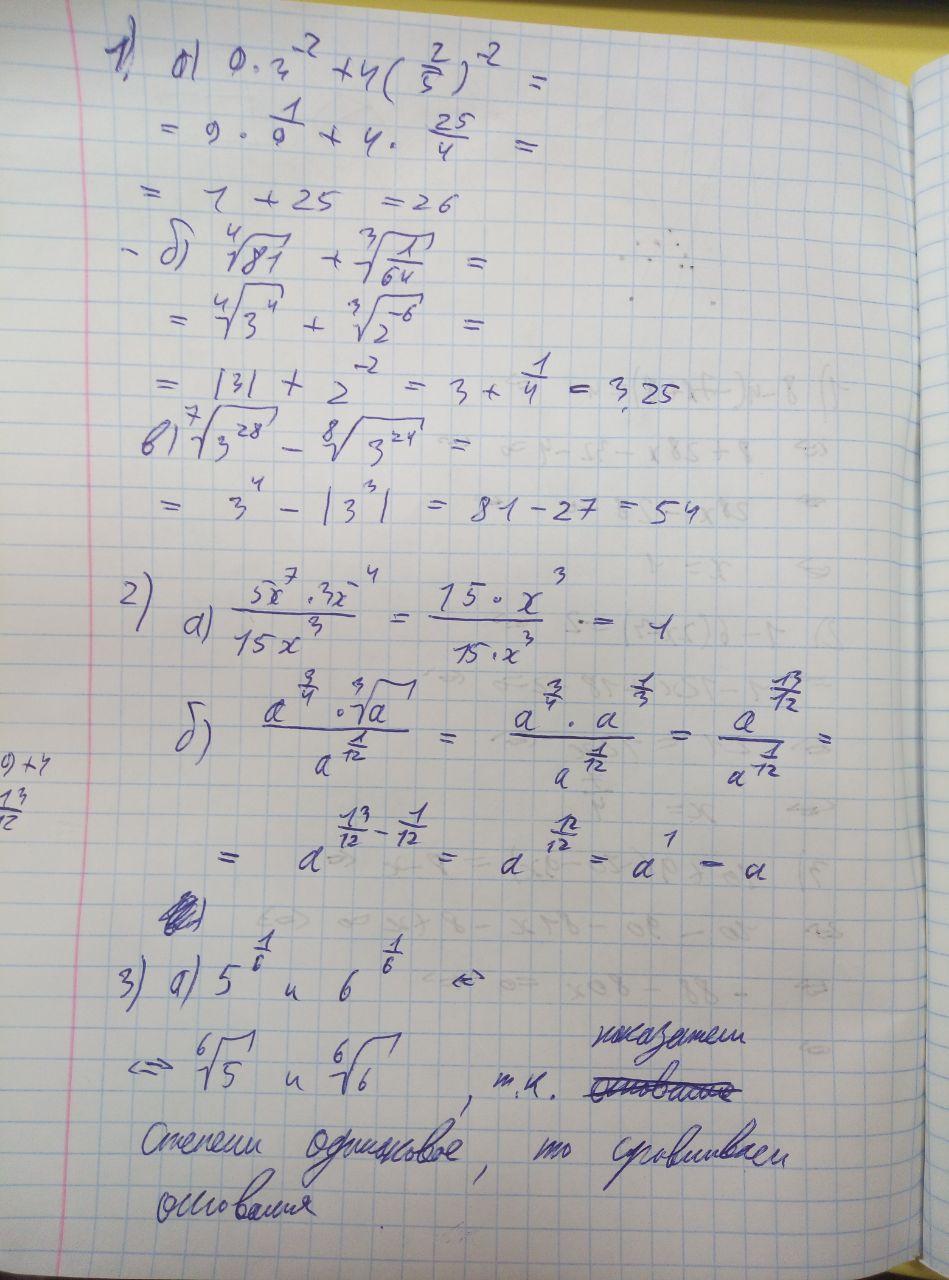 1) а) 9·3^-2 + 4(2/5)^-2 =
= 9 · 1/9 + 4 · 25/4 =
= 1 + 25 = 26
- б) ⁴√81 + ³√(1/64) =
= ⁴√(3^4) + ³√(2^-6) =
= |3| + 2^-2 = 3 + 1/4 = 3,25
в) ⁷√(3^28) - ⁸√(3^24) =
= 3^4 - |3^3| = 81 - 27 = 54
2) а) (5x^7 · 3x^-4)/(15x^3) = (15 · x^3)/(15 · x^3) = 1
б) (a^(3/4) · ³√a)/(a^(1/12)) = (a^(3/4) · a^(1/3))/(a^(1/12)) = (a^(13/12))/(a^(1/12)) =
9+4
13/12
= a^(13/12 - 1/12) = a^(12/12) = a^1 = a
3) а) 5^(1/6) и 6^(1/6) ⇔
⇔ ⁶√5 и ⁶√6, т.к. показатели
степени одинаковое, то сравниваем
основания